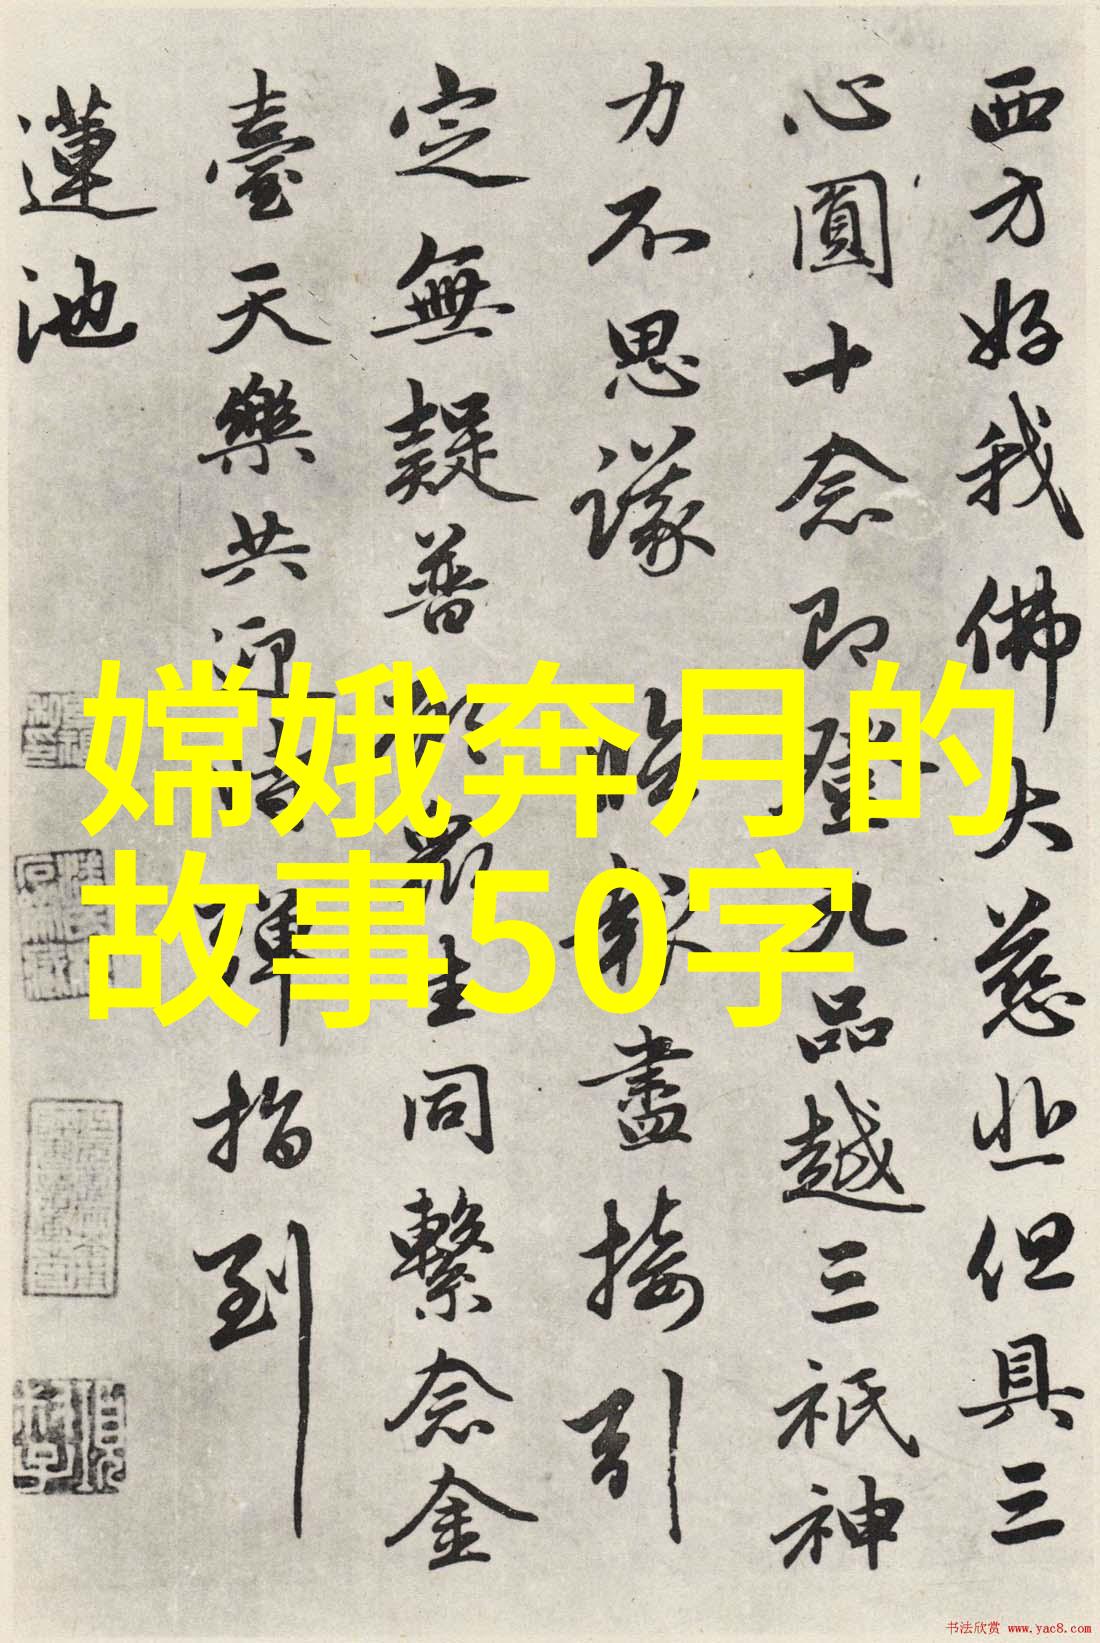 西方好我佛大慈悲但具三
心圓十念即登九品越三祇神
力不思議臨報盡接引
定無疑普於眾生同繫念金
臺天樂共迎時彈指到
蓮池
嫦娥奔月的
故事50字
书法欣赏 www.yac8.com